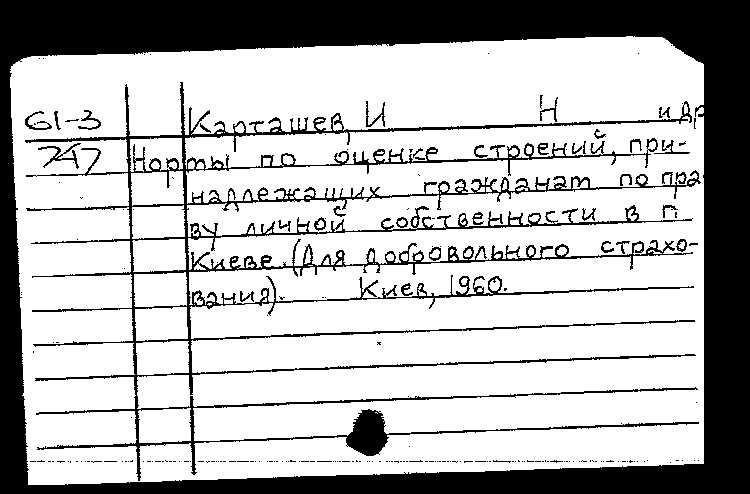 61-3 Карташев, И Н и др
747 Нормы по оценке строений, при-
надлежащих гражданам по пра
ву личной собственности в г.
Киеве. (Для добровольного страхо-
вания). Киев, 1960.